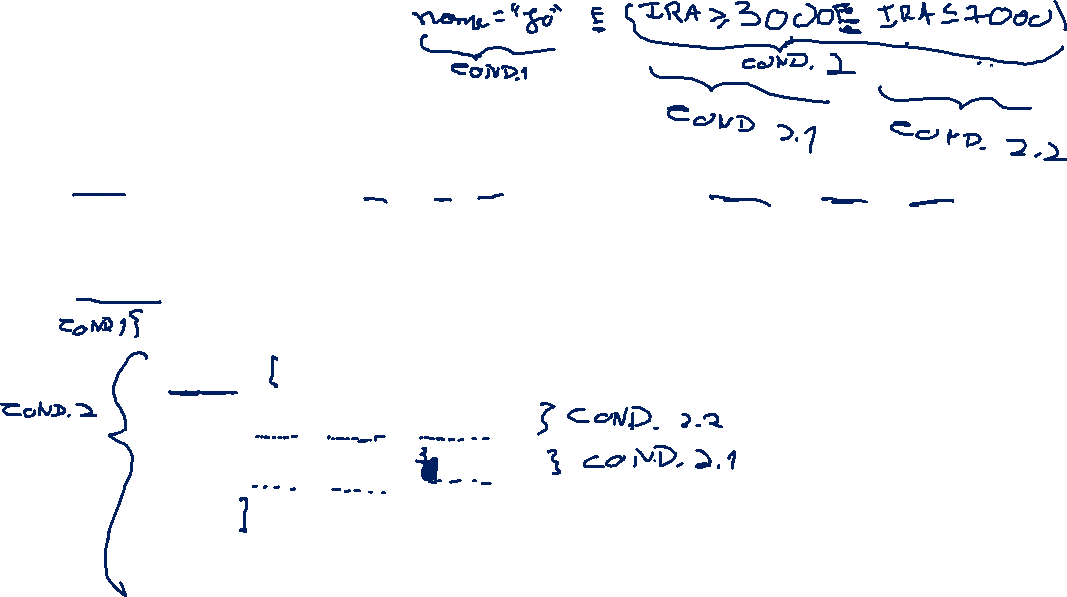 nome = "Jo" E (IRA ≥ 3000 E IRA ≤ 7000)
COND.1 COND. 2
COND 2.1 COND. 2.2
COND 1 }
{
COND. 2 {
} COND. 2.2
} COND. 2.1
]